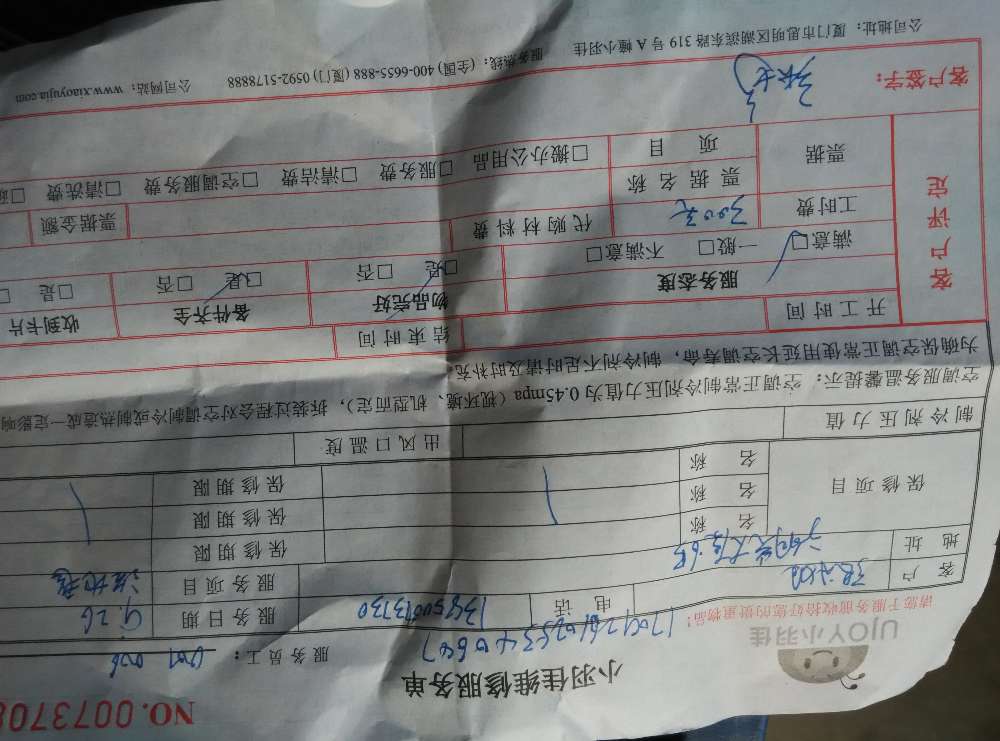 NO.0073708
小羽佳维修服务单
UJOY小羽佳
请您于服务前收拾好您的贵重物品!
服务员工:
客户
电话
服务日期 9.26
服务项目
地址
保修项目
名称
保修期限
名称
保修期限
名称
保修期限
制冷剂压力值
出风口温度
空调服务温馨提示:空调正常制冷剂压力值为0.45mpa(视环境、机型而定),拆装过程会对空调制冷或制热造成一定影响
为确保空调正常使用延长空调寿命,制冷剂不足时请及时补充。
客户评定
开工时间
结束时间
服务态度
物品完好
备件齐全
收到卡片
满意□ 一般□ 不满意□
□是 □否
□是 □否
□是 □
工时费 300元 代购材料费
票据金额
票据
票据名称
项目
□搬办公用品 □服务费 □清洁费 □空调服务费 □清洗费 □
客户签字:
公司地址:厦门市思明区湖滨东路319号A幢小羽佳 服务热线:(全国)400-6655-888(厦门)0592-5178888 公司网站:www.xiaoyujia.com